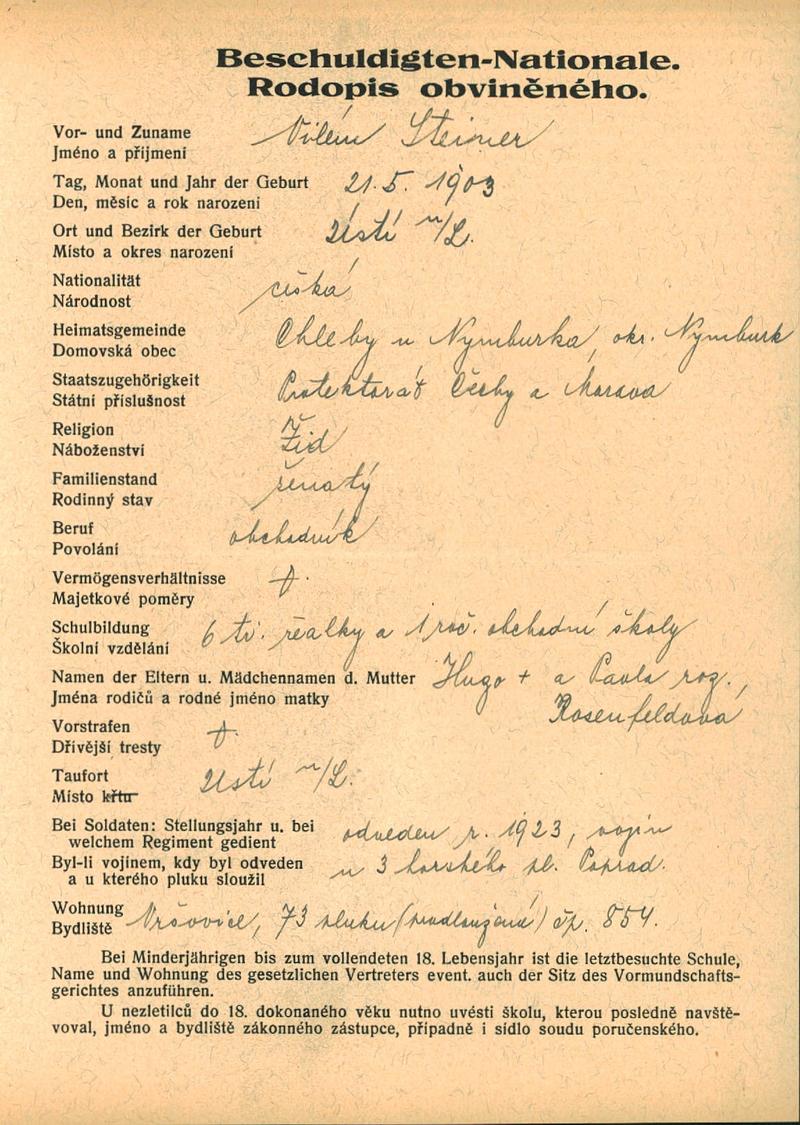 Beschuldigten-Nationale.
Rodopis obviněného.
Vor- und Zuname
Jméno a přijmení
Vilém Steiner
Tag, Monat und Jahr der Geburt
Den, měsíc a rok narození
21.5. 1903
Ort und Bezirk der Geburt
Místo a okres narození
Ústí n/L.
Nationalität
Národnost
česká
Heimatsgemeinde
Domovská obec
Chleby u Nymburka, okr. Nymburk
Staatszugehörigkeit
Státní příslušnost
Protektorát Čechy a Morava
Religion
Náboženství
Žid
Familienstand
Rodinný stav
ženatý
Beruf
Povolání
obchodník
Vermögensverhältnisse
Majetkové poměry
Schulbildung
Školní vzdělání
6 tř. reálky a 1 roč. obchodní školy
Namen der Eltern u. Mädchennamen d. Mutter
Jména rodičů a rodné jméno matky
Hugo + a Pavla roz.,
Rosenfeldová
Vorstrafen
Dřívější tresty
Taufort
Místo křtu
Ústí n/L.
Bei Soldaten: Stellungsjahr u. bei
welchem Regiment gedient
Byl-li vojínem, kdy byl odveden
a u kterého pluku sloužil
odveden r. 1923, vojín
u 3 horského pl. Poprad.
Wohnung
Bydliště
Vršovice, 73 pluku (prodloužená) čp. 854.
Bei Minderjährigen bis zum vollendeten 18. Lebensjahr ist die letztbesuchte Schule,
Name und Wohnung des gesetzlichen Vertreters event. auch der Sitz des Vormundschafts-
gerichtes anzuführen.
U nezletilců do 18. dokonaného věku nutno uvésti školu, kterou posledně navště-
voval, jméno a bydliště zákonného zástupce, případně i sídlo soudu poručenského.